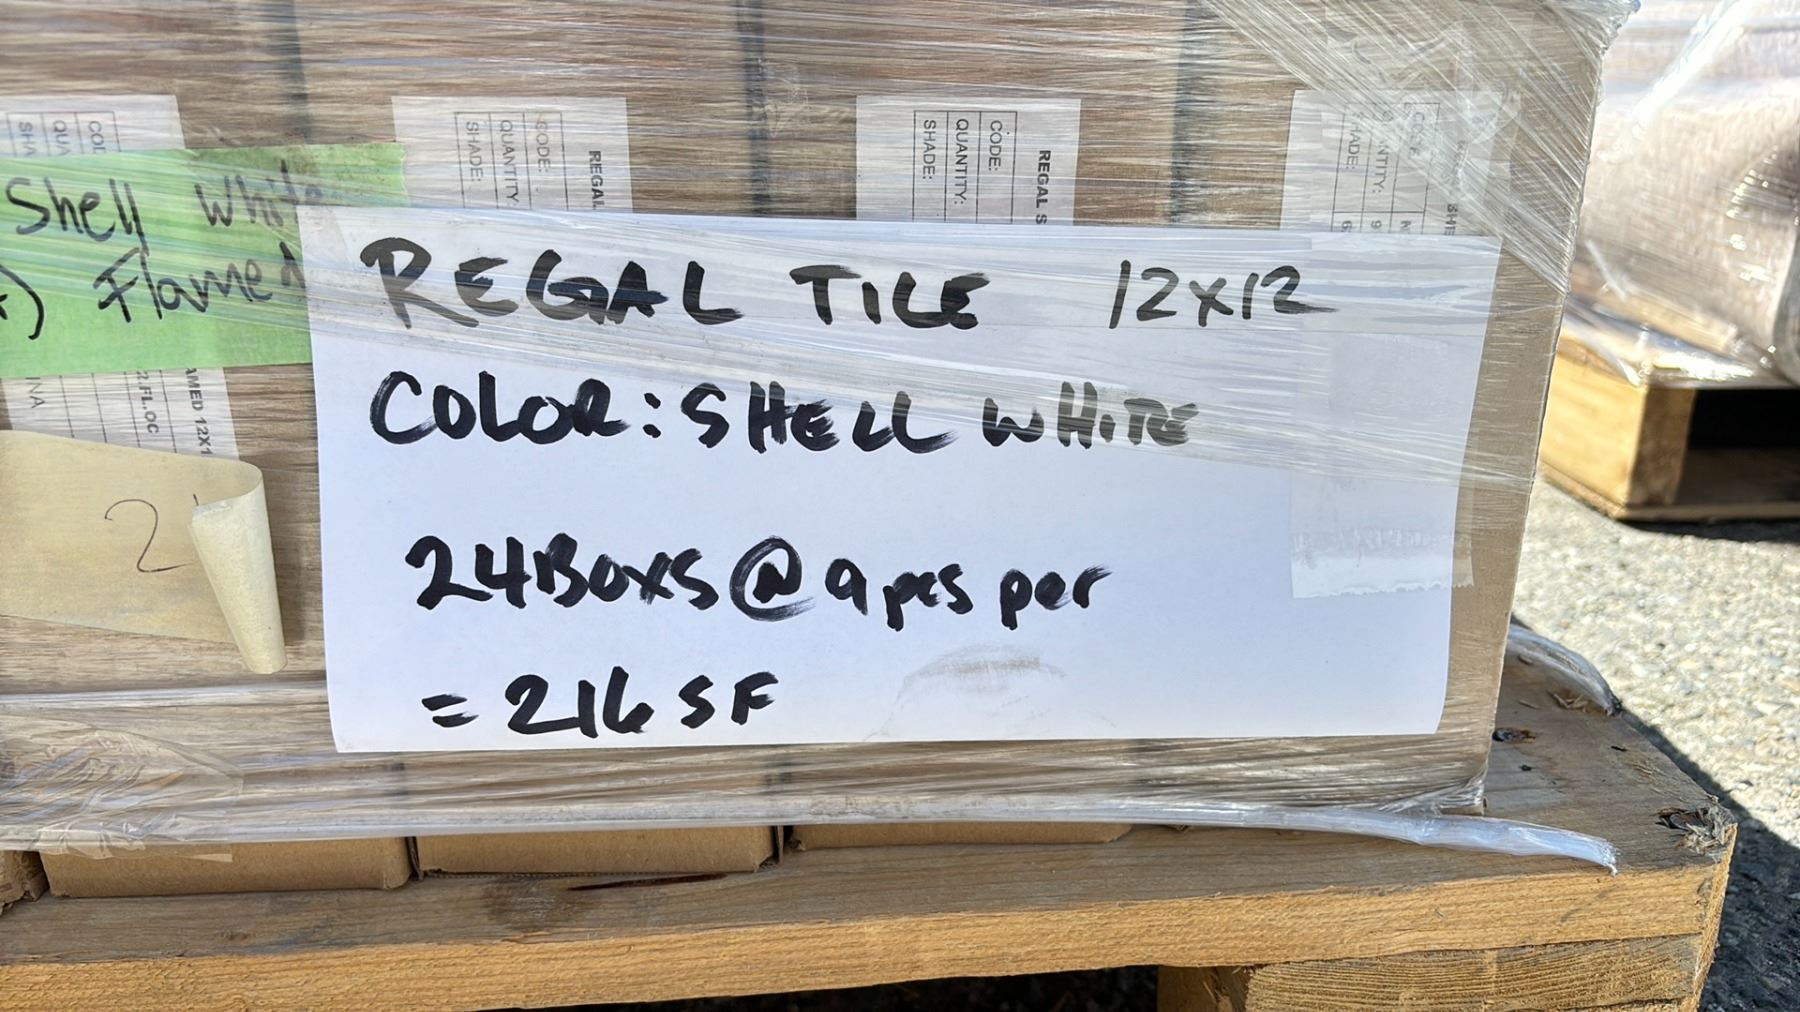 COD
QUA
SHA
CODE:
QUANTITY:
SHADE:
REGAL
REGAL S
CODE:
QUANTITY:
SHADE:
Shell White
Flamed
REGAL TILE 12x12
COLOR: SHELL WHITE
24 BOXS @ 9 pcs per
= 216 SF
AMED 12X1
2.FL.OC
NA
2